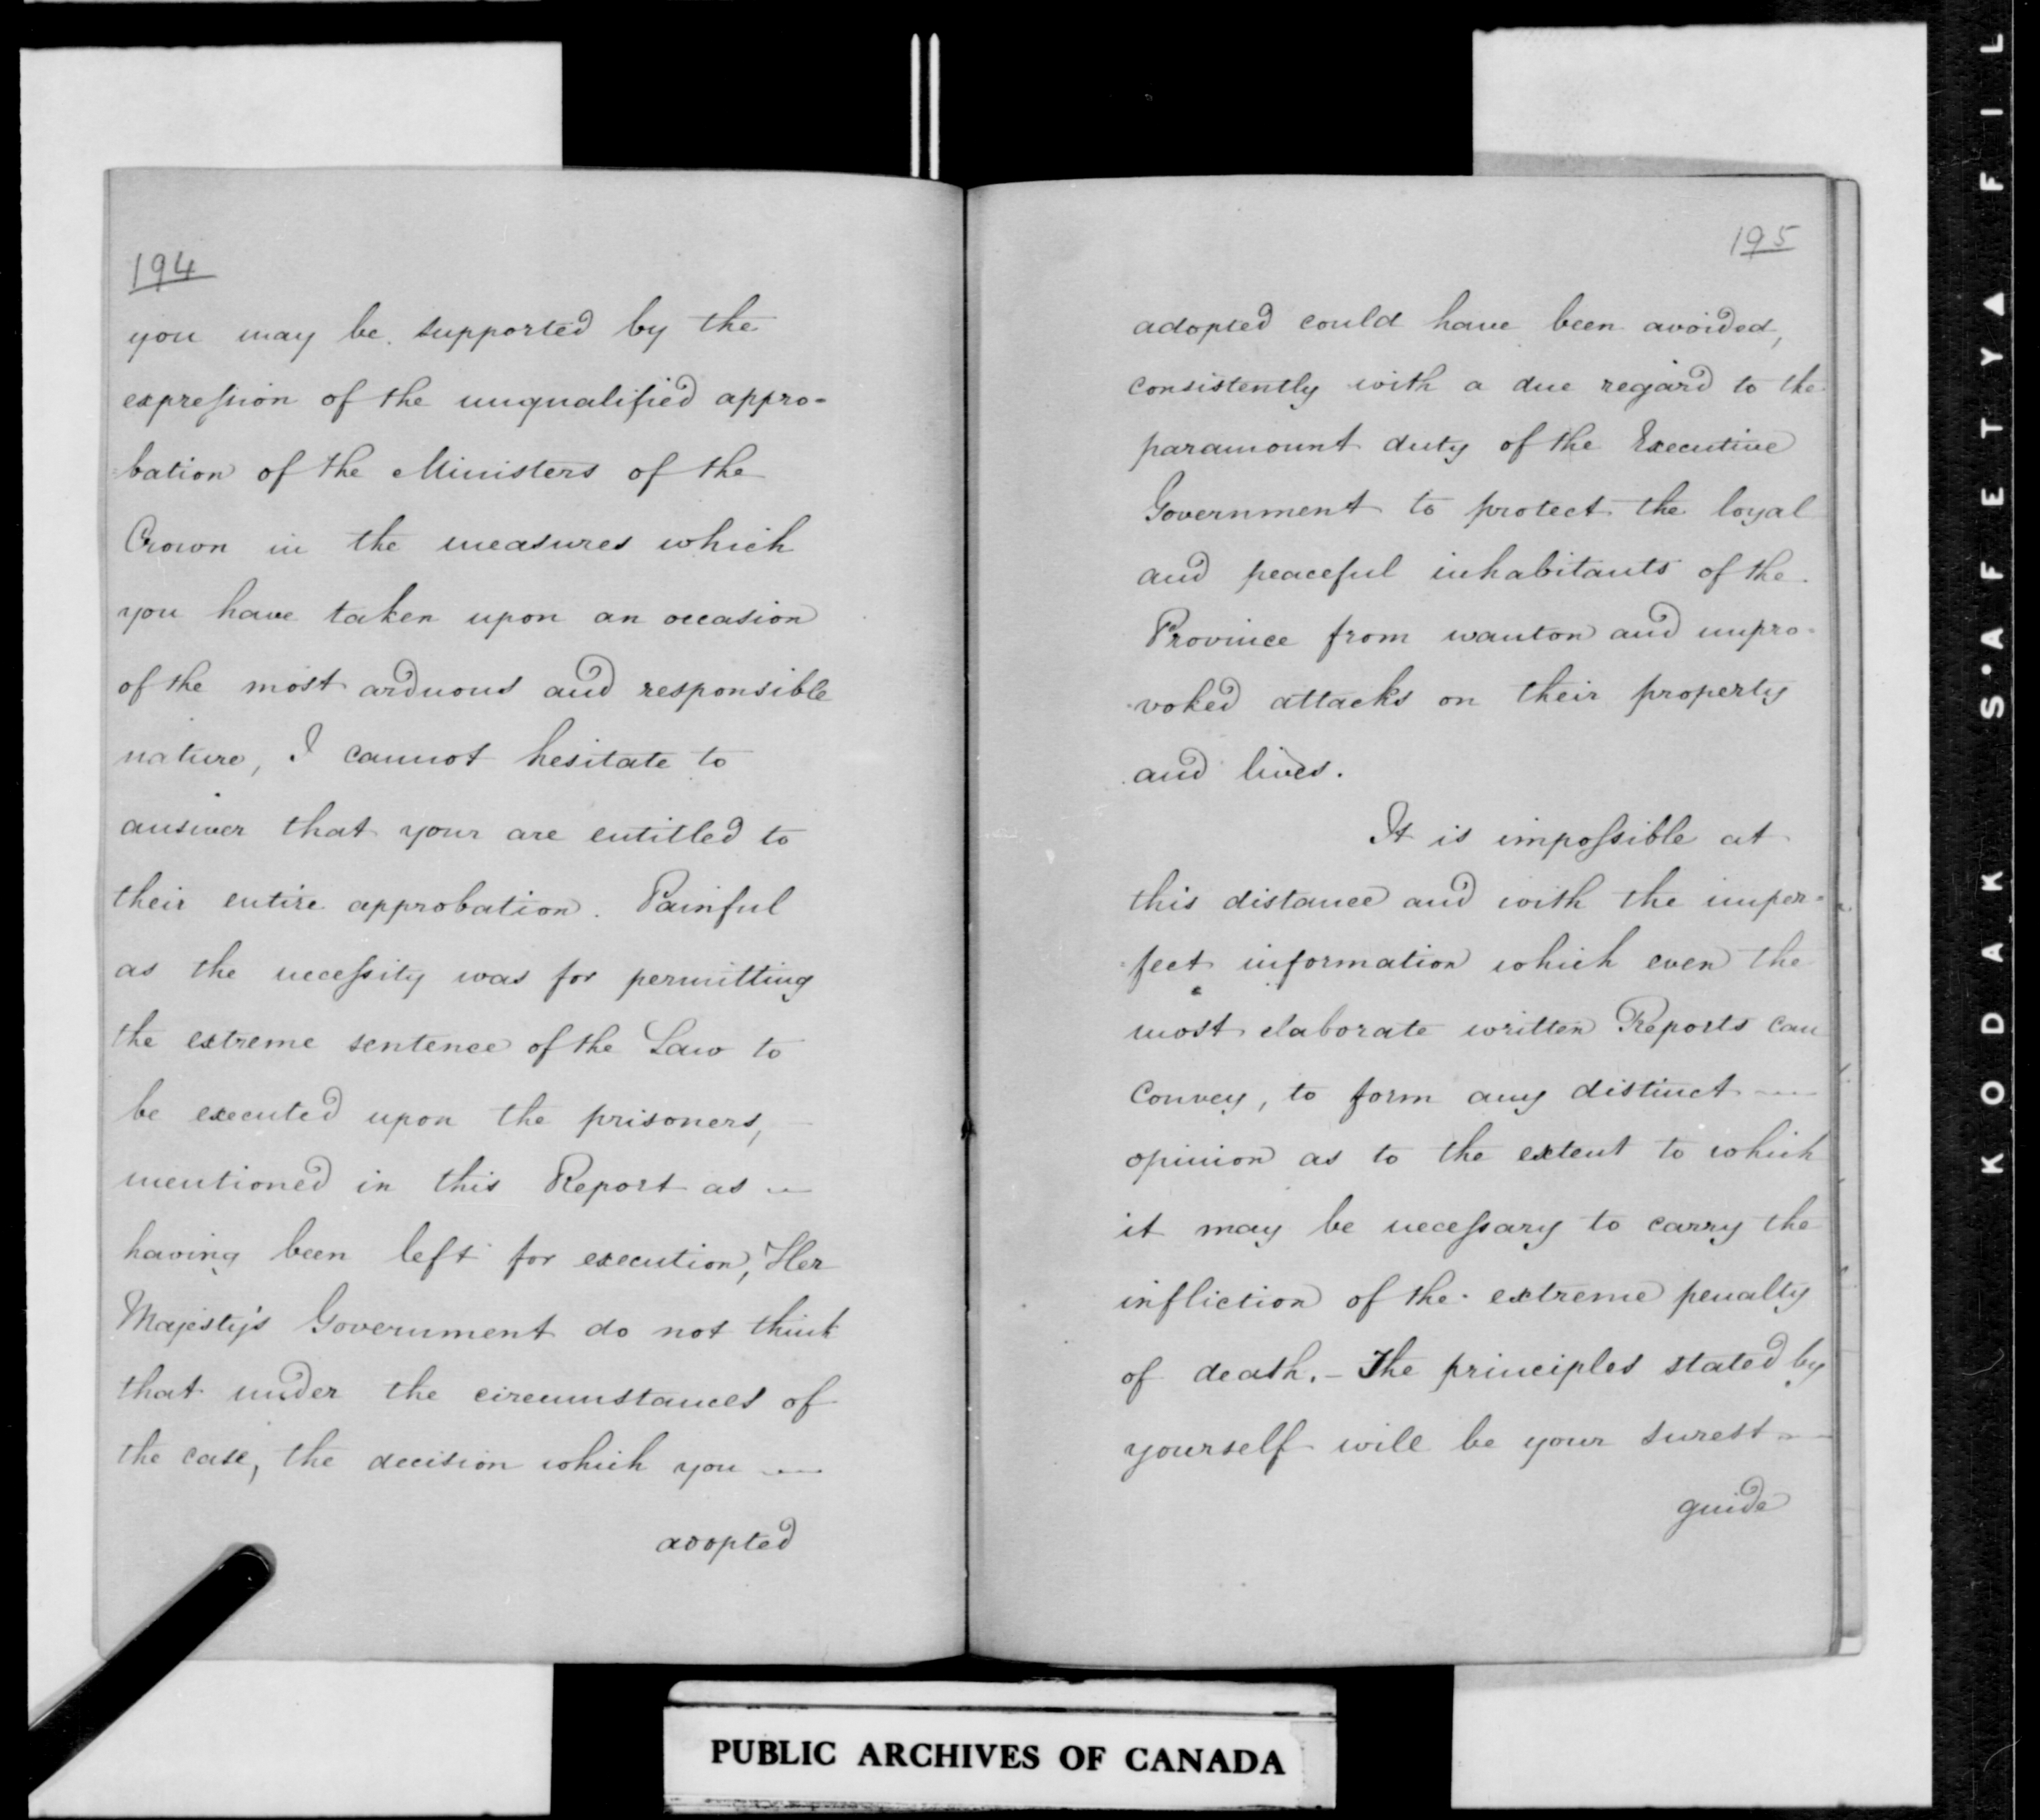 194
you may be supported by the
expression of the unqualified appro-
bation of the Ministers of the
Crown in the measures which
you have taken upon an occasion
of the most arduous and responsible
nature, I cannot hesitate to
answer that your are entitled to
their entire approbation. Painful
as the necessity was for permitting
the extreme sentence of the Law to
be executed upon the prisoners,
mentioned in this Report as —
having been left for execution, Her
Majesty's Government do not think
that under the circumstances of
the case, the decision which you —
adopted
195
adopted could have been avoided,
consistently with a due regard to the
paramount duty of the Executive
Government to protect the loyal
and peaceful inhabitants of the
Province from wanton and unpro-
voked attacks on their property
and lives.
It is impossible at
this distance and with the imper-
fect information which even the
most elaborate written Reports can
convey, to form any distinct —
opinion as to the extent to which
it may be necessary to carry the
infliction of the extreme penalty
of death. – The principles stated by
yourself will be your surest —
guide
PUBLIC ARCHIVES OF CANADA
KODAK S'AFETY▲FIL